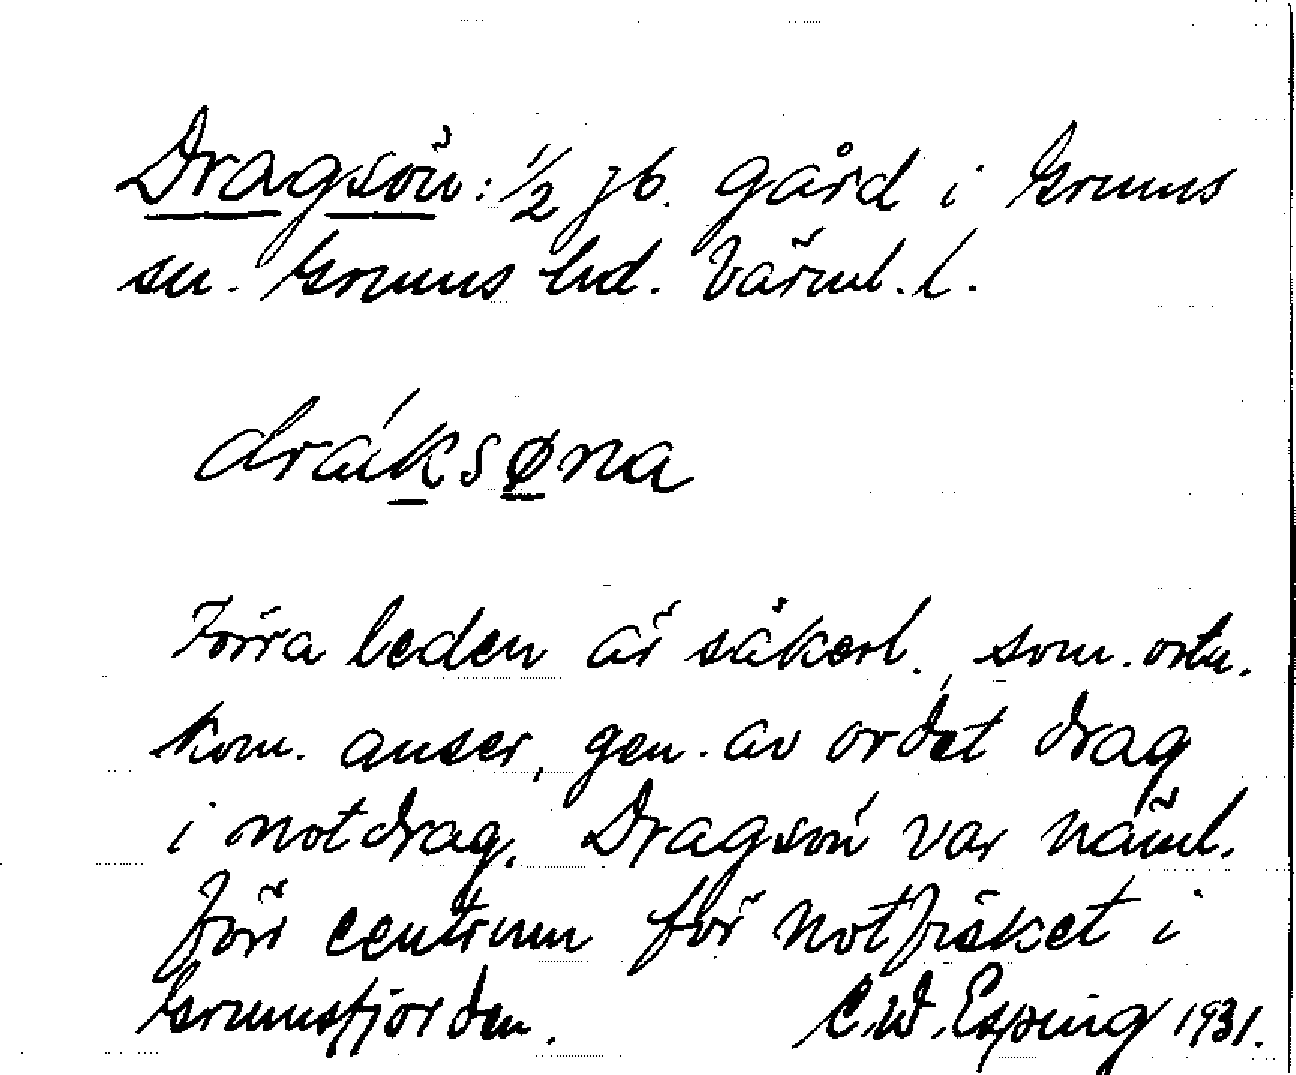 Dragsön: 1/2 jb. gård i Grums
sn. Grums hd. Värml. l.
dráksøna
Förra leden är säkerl., som ortn.
kom. anser, gen. av ordet drag
i notdrag. Dragsön var näml.
förr centrum för notfisket i
Grumsfjorden. C.W. Esping 1931.